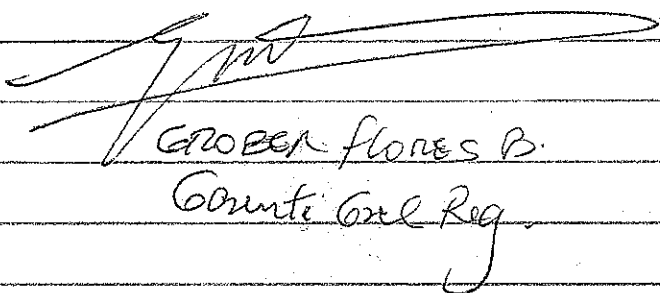 GROBER FLORES B.
Gerente Gral Reg.